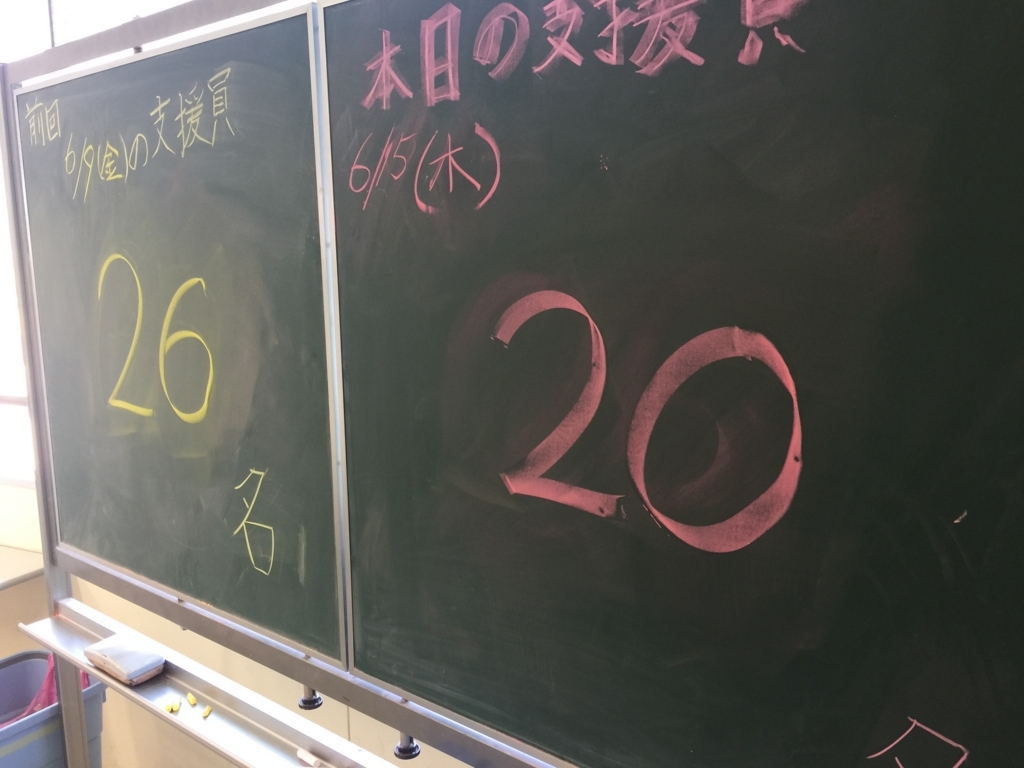 前回
6/9(金)の支援員
26
名
本日の支援員
6/15(木)
20